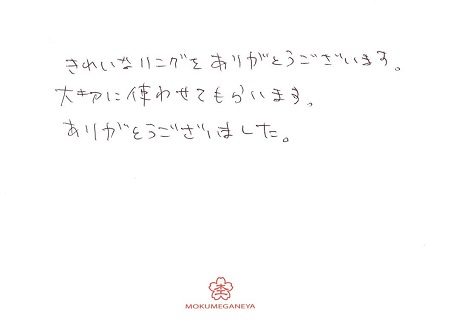 きれいなリングをありがとうございます。
大切に使わせてもらいます。
ありがとうございました。
MOKUMEGANEYA